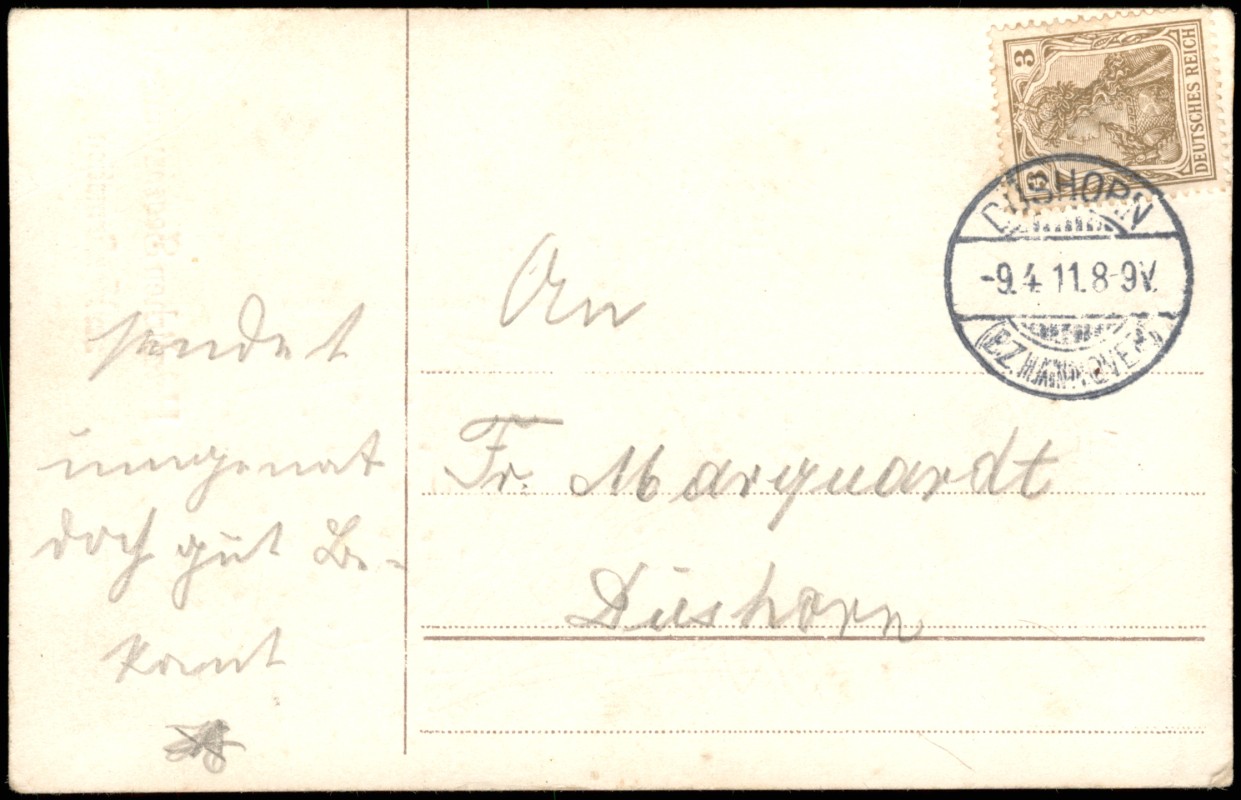 sendet
unngenat
doch gut Be-
kannt
An
Fr. Marquardt
Düshorn
3
3
DEUTSCHES REICH
DÜSHORN
-9.4.11.8-9V.
(BZ. HANNOVER)